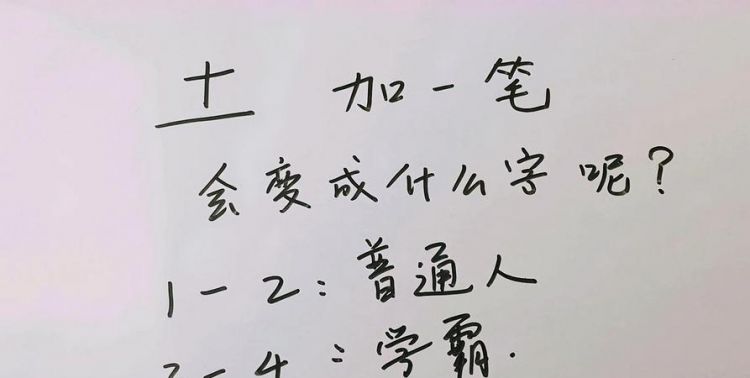 土 加一笔
会变成什么字呢？
1-2：普通人
3-4：学霸.